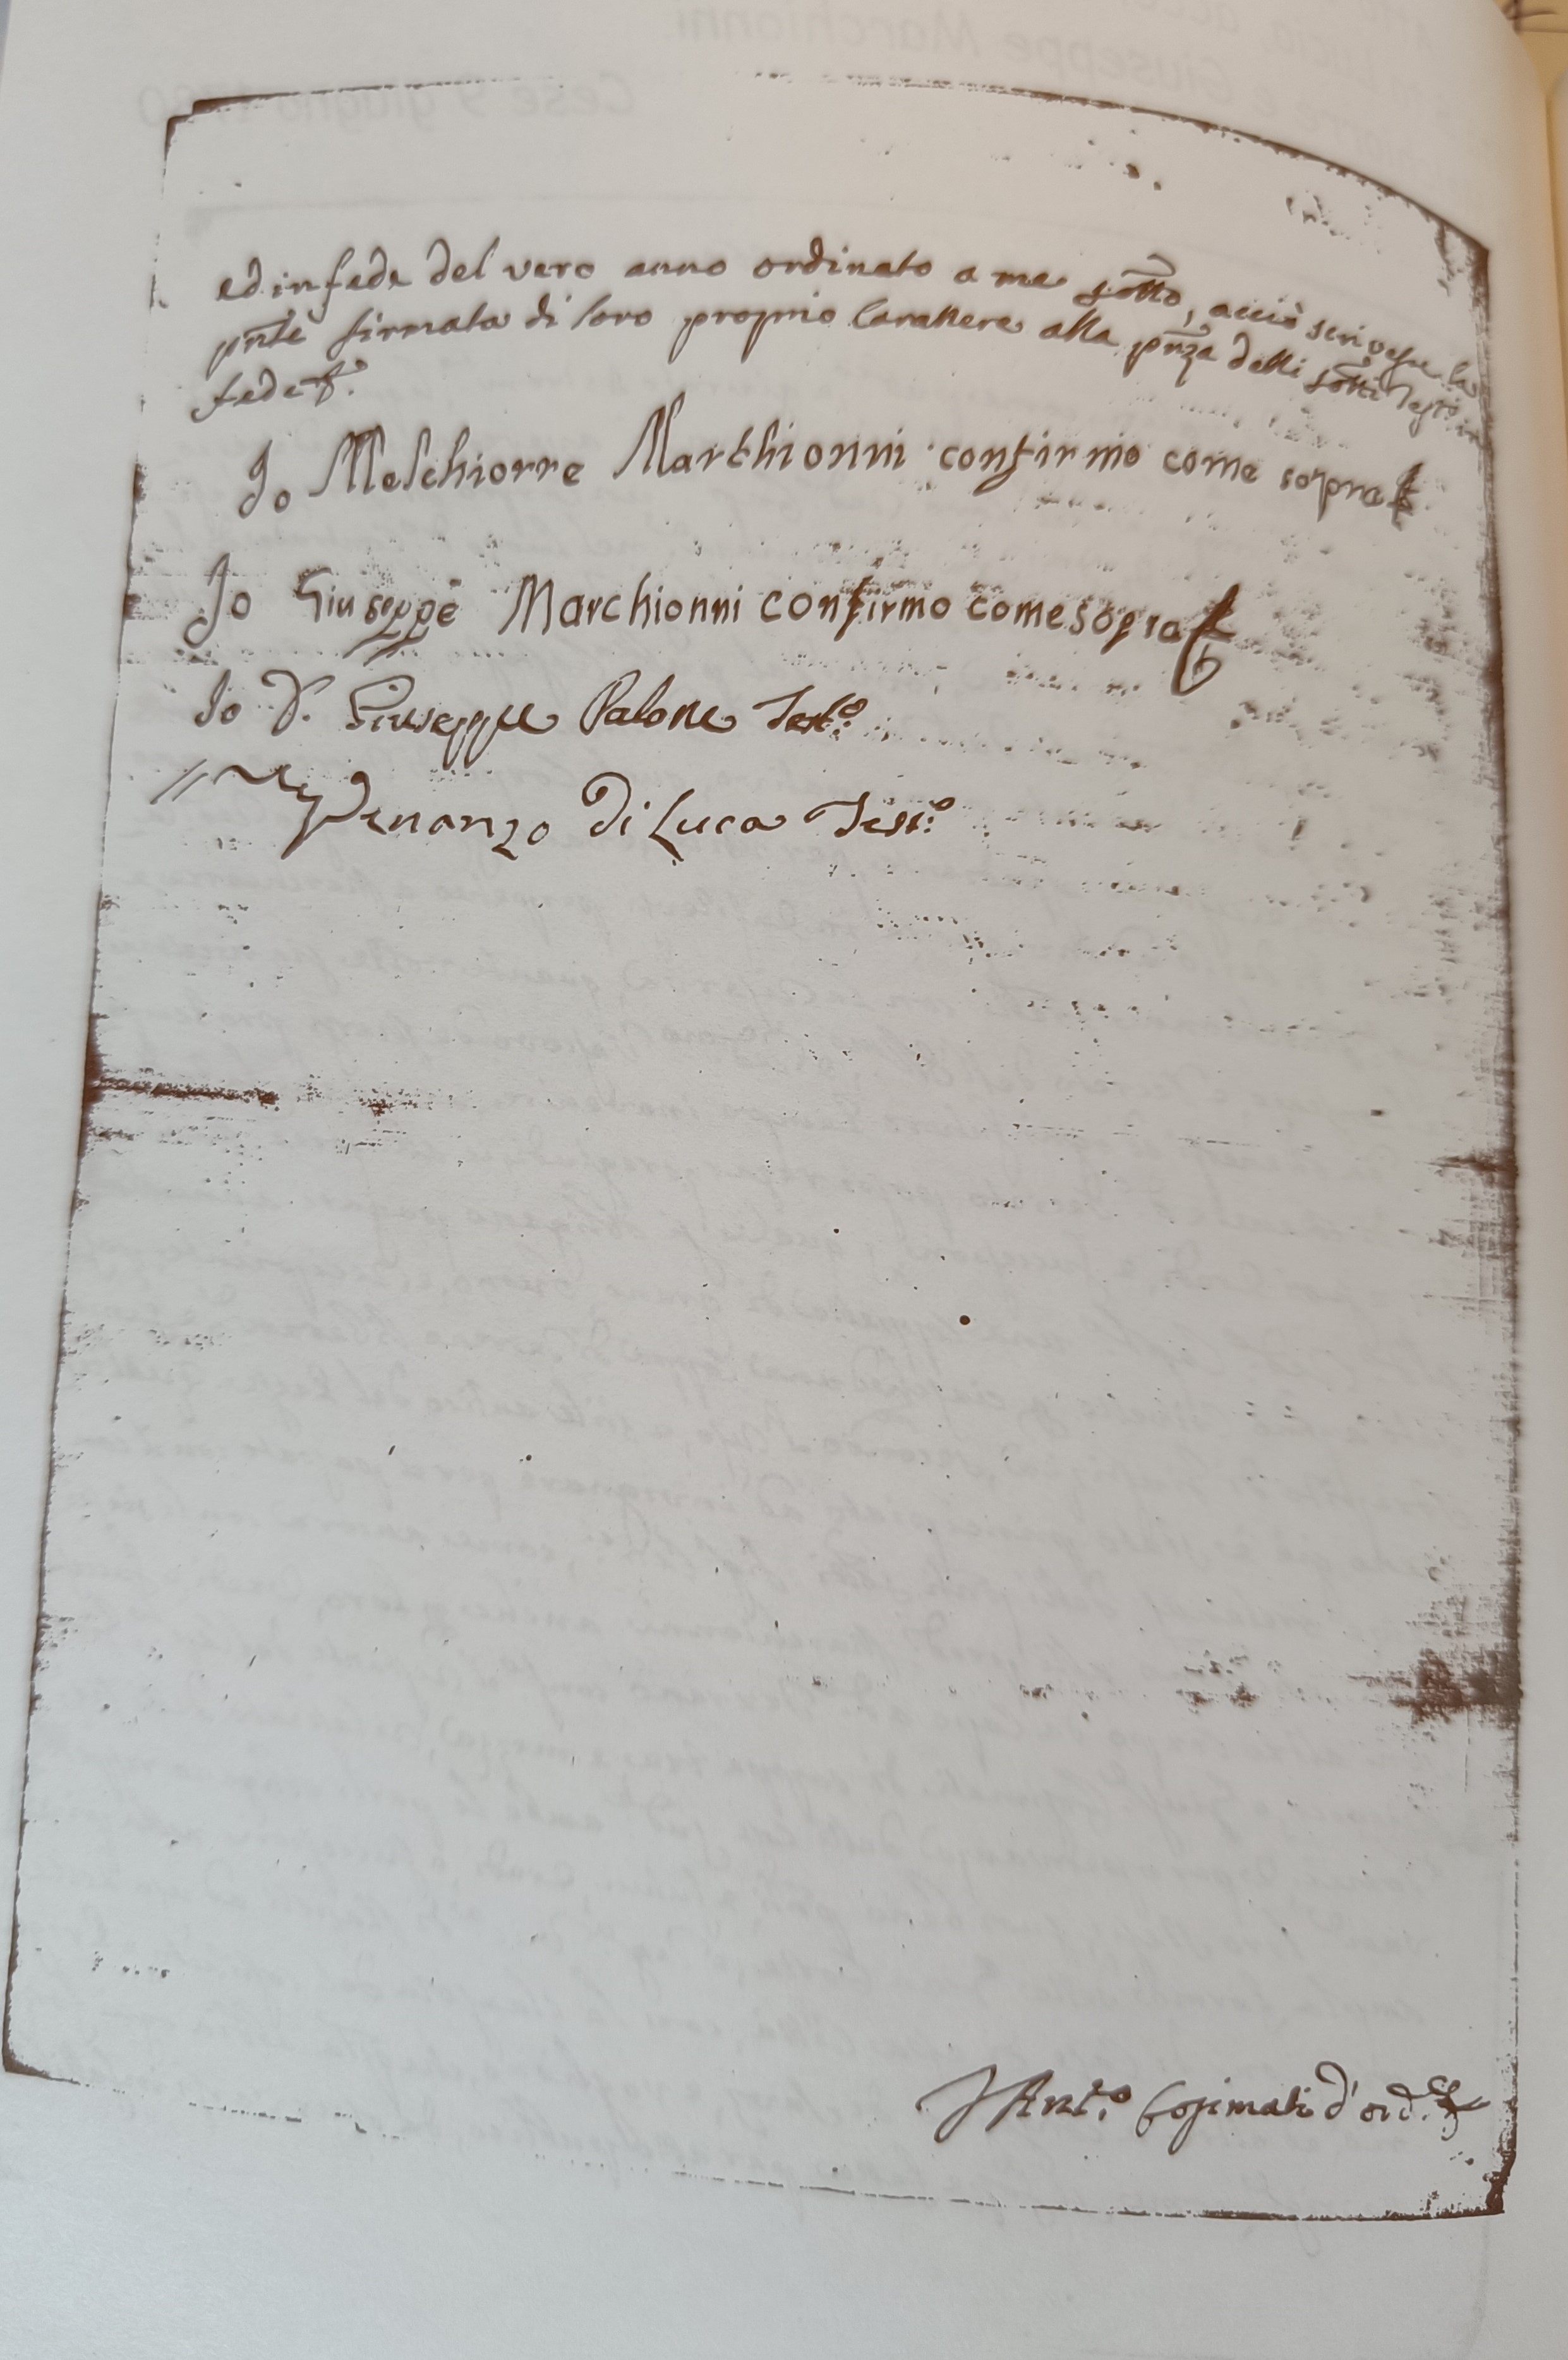 ed in fede del vero anno ordinato a me sotto, acciò scrivesse la
pnte firmata di loro proprio Carattere alla pnza delli sotti Testi in
fede &.
Io Melchiorre Marchionni confirmo come sopra
Io Giuseppe Marchionni confirmo come sopra
Io D. Giuseppe Palone Test.º
Venanzo Di Luca Test.º
Ant.º Cosimati d'ord.e